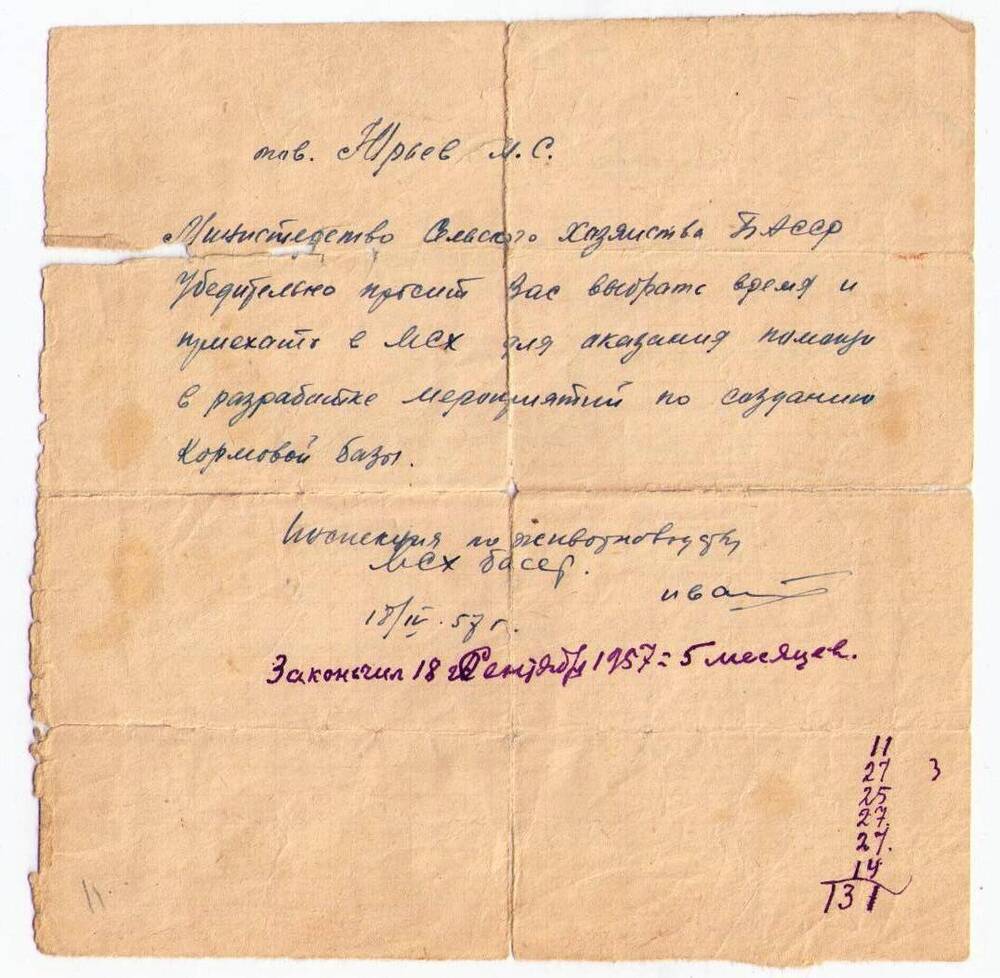 тов. Юрьев М.С.
Министерство Сельского Хозяйства БАССР
Убедительно просит Вас выбрать время и
приехать в МСХ для оказания помощи
в разработке мероприятий по созданию
Кормовой базы.
Инспекция по животноводству
МСХ БАССР.
18/IV.57 г.
Закончил 18 Сентября 1957 = 5 месяцев.
11
27 3
25
27.
27.
14
131
11